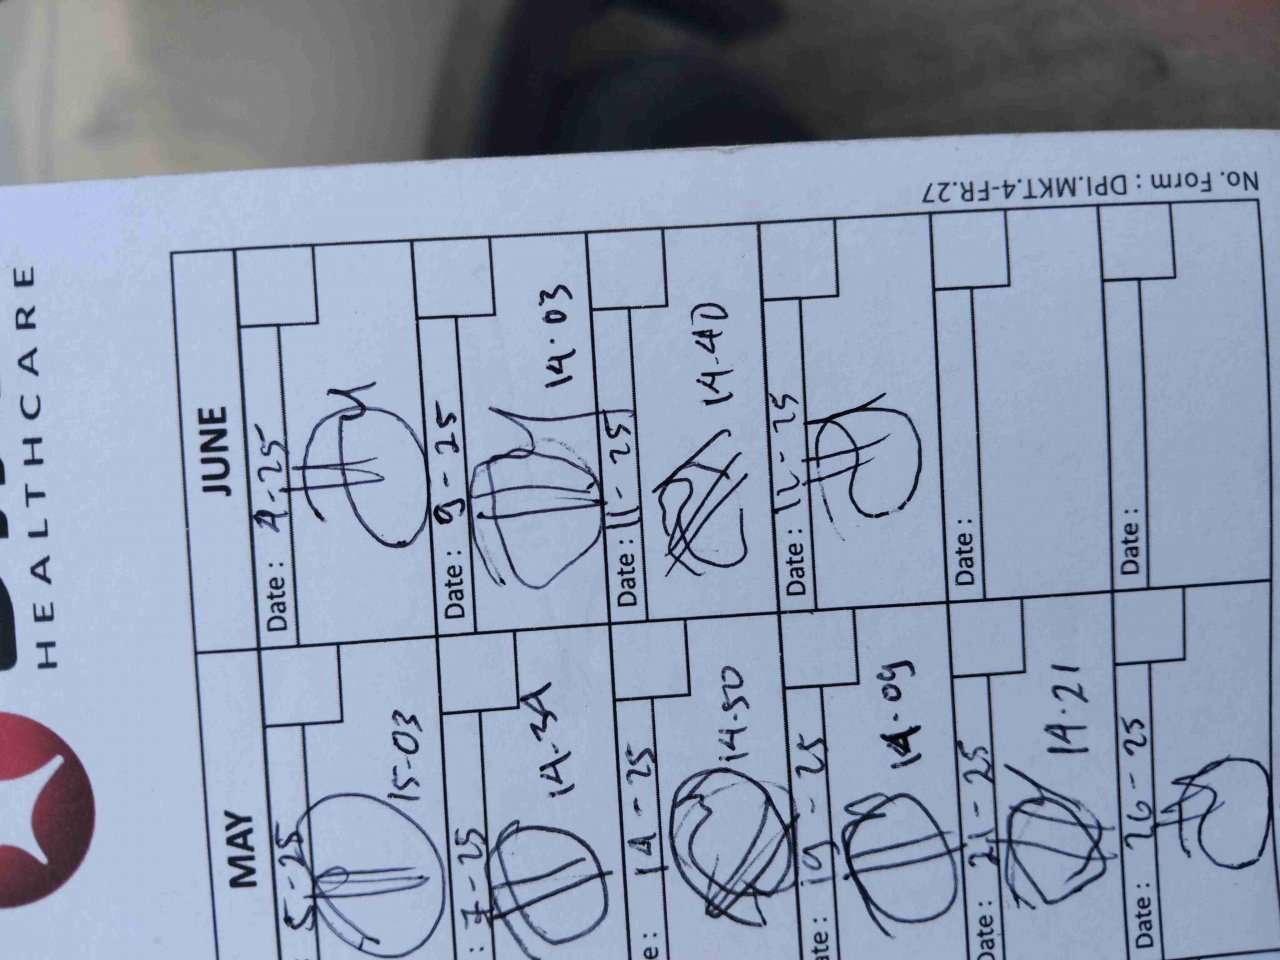 HEALTHCARE
No. Form : DPI.MKT.4-FR.27
MAY
5-25
15-03
: 7-25
14-34
e: 14-25
14-50
ate: 19-25
14.09
Date: 21-25
14.21
Date: 26-25
JUNE
Date: 4-25
Date: 9-25
14.03
Date: 11-25
14-40
Date: 12-25
Date:
Date: